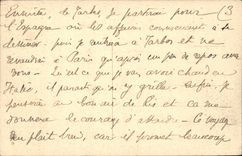 Ensuite, de Tarbes, je partirai pour (3
l'Espagne où les affaires commencent à se
dessiner, puis je rentrerai à Tarbes et ne
reviendrai à Paris qu'après un peu de repos avec
vous. Qu'est ce que je vais avoir chaud en
Italie, il parait qu'on y grille. Enfin, je
penserai au bon air de et ça me
donnera le courage d'attendre. Ce voyage
me plait bien, car il promet beaucoup